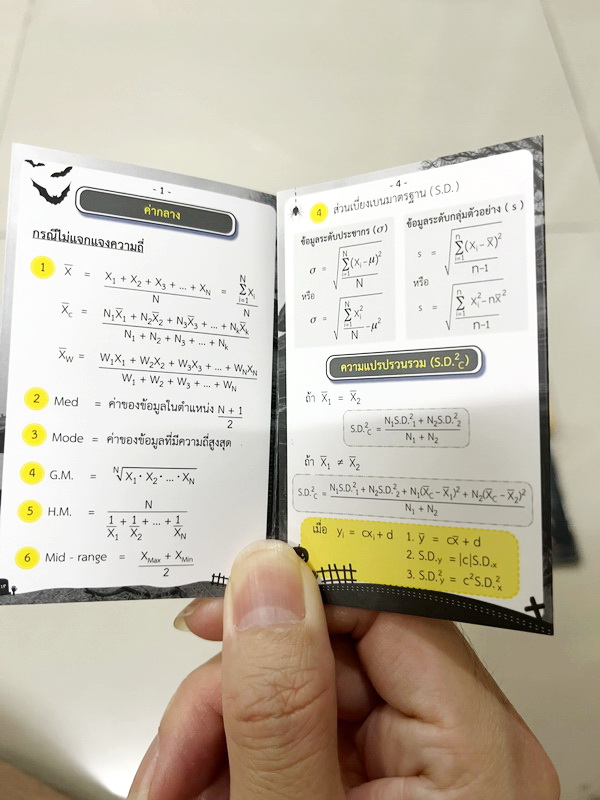 - 1 -
ค่ากลาง
กรณีไม่แจกแจงความถี่
1 X̅ = (X₁ + X₂ + X₃ + ... + X_N) / N = Σ_{i=1}^{N} Xᵢ / N
X̅_c = (N₁X̅₁ + N₂X̅₂ + N₃X̅₃ + ... + N_kX̅_k) / (N₁ + N₂ + N₃ + ... + N_k)
X̅_W = (W₁X₁ + W₂X₂ + W₃X₃ + ... + W_NX_N) / (W₁ + W₂ + W₃ + ... + W_N)
2 Med = ค่าของข้อมูลในตำแหน่ง (N + 1) / 2
3 Mode = ค่าของข้อมูลที่มีความถี่สูงสุด
4 G.M. = ᴺ√(X₁ · X₂ · ... · X_N)
5 H.M. = N / (1/X₁ + 1/X₂ + ... + 1/X_N)
6 Mid - range = (X_Max + X_Min) / 2
- 4 -
4 ส่วนเบี่ยงเบนมาตรฐาน (S.D.)
ข้อมูลระดับประชากร (σ)
σ = √(Σ_{i=1}^{N} (Xᵢ - μ)² / N)
หรือ
σ = √(Σ_{i=1}^{N} Xᵢ² / N - μ²)
ข้อมูลระดับกลุ่มตัวอย่าง ( s )
s = √(Σ_{i=1}^{n} (Xᵢ - X̅)² / (n-1))
หรือ
s = √((Σ_{i=1}^{n} Xᵢ² - nX̅²) / (n-1))
ความแปรปรวนรวม (S.D.²_C)
ถ้า X̅₁ = X̅₂
S.D.²_C = (N₁S.D.²₁ + N₂S.D.²₂) / (N₁ + N₂)
ถ้า X̅₁ ≠ X̅₂
S.D.²_C = (N₁S.D.²₁ + N₂S.D.²₂ + N₁(X̅_C - X̅₁)² + N₂(X̅_C - X̅₂)²) / (N₁ + N₂)
เมื่อ yᵢ = cxᵢ + d 1. y̅ = cx̅ + d
2. S.D._y = |c|S.D._x
3. S.D.²_y = c²S.D.²_x